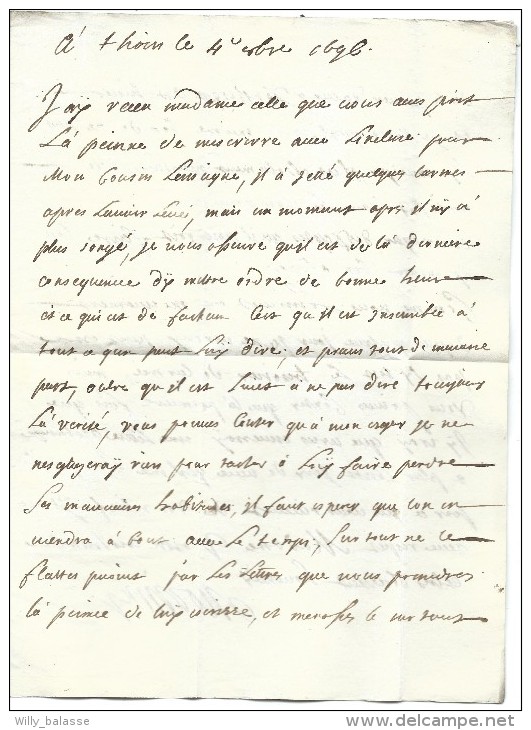 A thoin le 4e xbre 1696.
J'ay receu madame celle que vous aues prist
La peinne de mescrirre auec L'incluse pour
Mon Cousin Lemaigne, il a jetté quelques larmes
apres Lauoir Leue, mais un moment apres il ny a
plus songé, je vous assure quil est de la derniere
consequence dy mettre ordre de bonne heure
et ce qui est de facheux Cest qu'il est Insensible a
tout ce quon peut Luy dire, et prans tout de mauuaise
part, outre qu'il est suiet a ne pas dire toujours
La verité, vous pouues Conter qu'a mon egard je ne
negligeray rien pour tacher a Luy faire perdre
Ses mauuaises habitudes, il faut esperer que lon en
viendra a bout auec Le temps, Sur tout ne le
flattes point par les Lettres que vous prendres
la peinne de luy escrire, et menasses le sur tout
Willy_balasse
www.delcampe.net